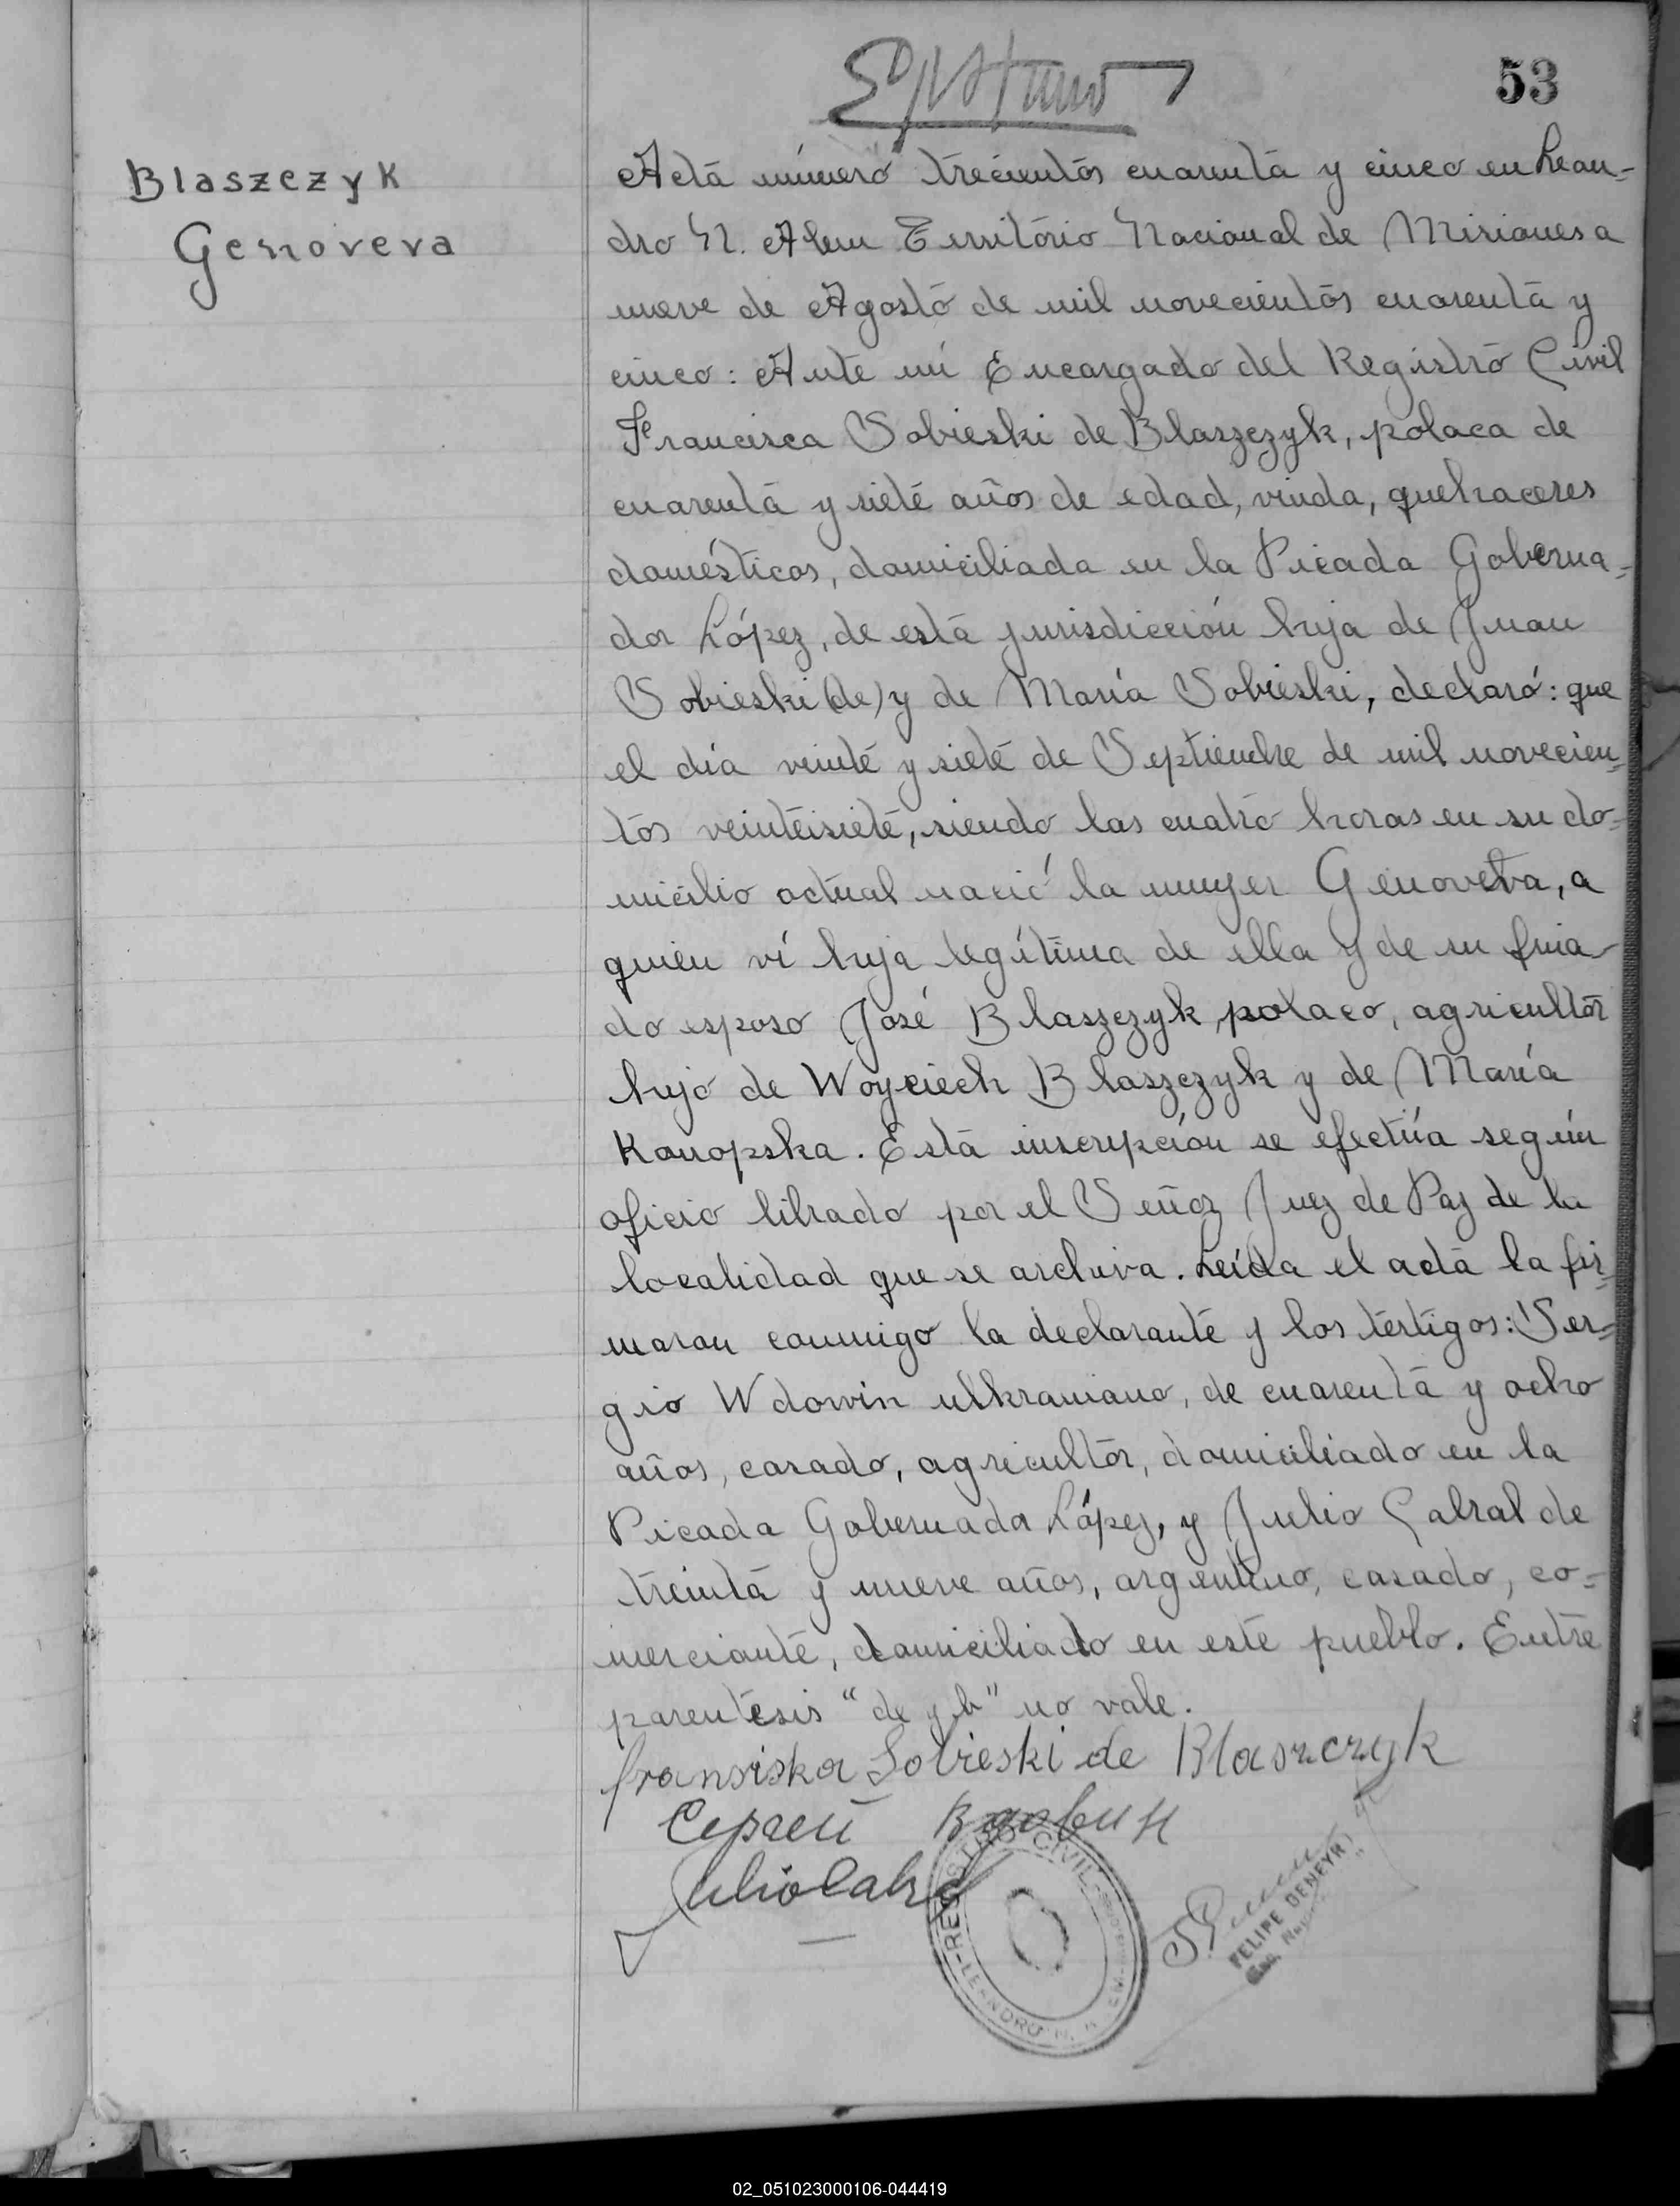 53
Blaszczyk
Genoveva
Acta número trecientos cuarenta y cinco en Lean=
dro N. Alem Território Nacional de Misiones a
nueve de Agosto de mil novecientos cuarenta y
cinco: Ante mi Encargado del Registro Civil
Francisca Sobieski de Blaszczyk, polaca de
cuarenta y siete años de edad, viuda, quehaceres
domésticos, domiciliada en la Picada Goberna=
dor López, de esta jurisdicción hija de Juan
Sobieski (de) y de María Sobieski, declaró: que
el día veinte y siete de Septiembre de mil novecien=
tos veinteisiete, siendo las cuatro horas en su do=
micilio actual nació la mujer Genoveva, a
quien ví hija legítima de ella y de su fina-
do esposo José Blaszczyk, polaco, agricultor
hijo de Woyciech Blaszczyk y de María
Konopska. Esta inscripción se efectúa según
oficio librado por el Señor Juez de Paz de la
localidad que se archiva. Leída el acta la fir=
maron conmigo la declarante y los testigos: Ser=
gio Wdowin ulkraniano, de cuarenta y ocho
años, casado, agricultor, domiciliado en la
Picada Gobernador López, y Julio Cabral de
treinta y nueve años, argentino, casado, co=
merciante, domiciliado en este pueblo. Entre
parentesis "de y b" no vale.
fransiska Sobieski de Blaszczyk
Сергей Вдовин
Julio Cabral
REGISTRO CIVIL
LEANDRO N. ALEM
FELIPE DENEYRI
02_051023000106-044419